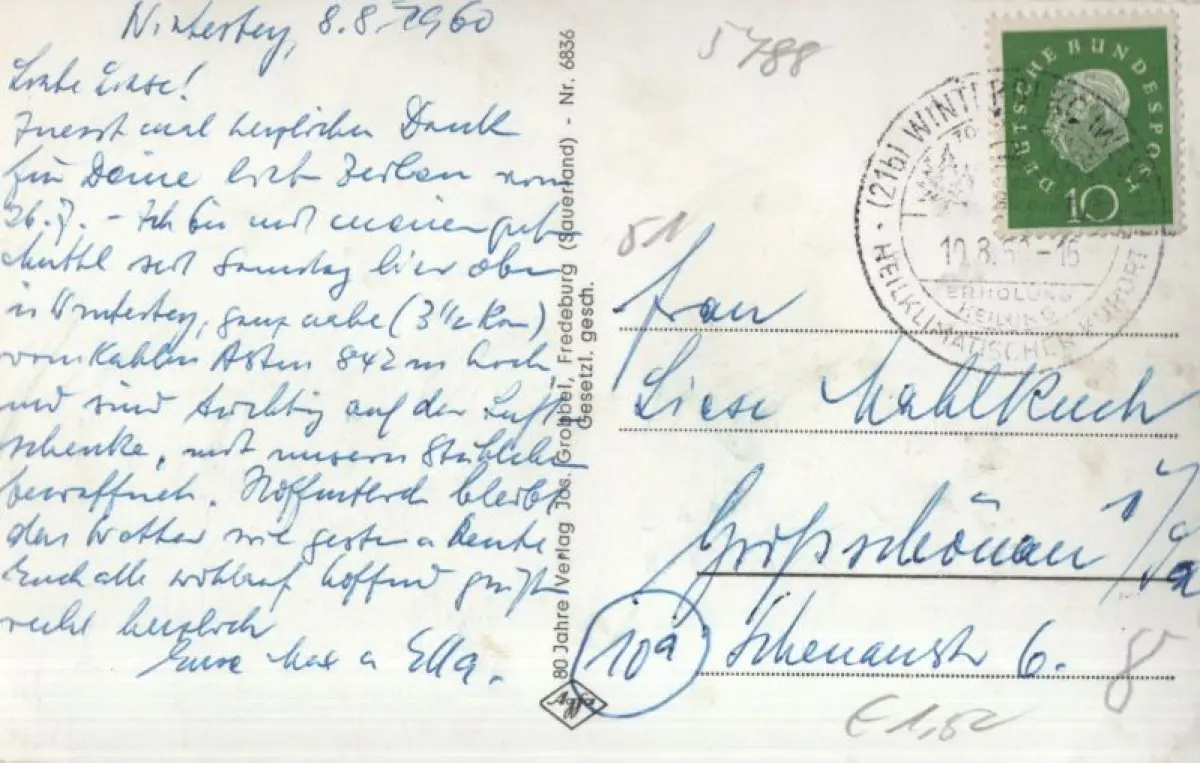 Winterberg, 8.8.1960
Liebe Liese!
Zuerst mal herzlichen Dank
für Deine lieb. Zeilen vom
26.7. - Ich bin mit meiner guten
seit Samstag hier oben
in Winterberg, ganz nahe (3 1/2 Km)
vom Kahlen Asten 842 m hoch
und sind tüchtig auf der Luft
schenke, mit unsern Stühlchen
bewaffnet. Hoffentlich bleibt
das Wetter wie gestern u heute
Euch alle wohlauf hoffend grüßen
recht herzlich
Eure Max u Ella.
80 Jahre Verlag Jos. Grobbel, Fredeburg (Sauerland) - Nr. 6836
Gesetzl. gesch.
Agfa
5788
51
DEUTSCHE BUNDESPOST
10
(21b) WINTERBERG
10.8. -16
ERHOLUNG
HEILUNG
HEILKLIMATISCHER KURORT
Frau
Liese Mahlkuch
Großschönau i/Sa
10a Schenaustr 6.
8
€ 1,52